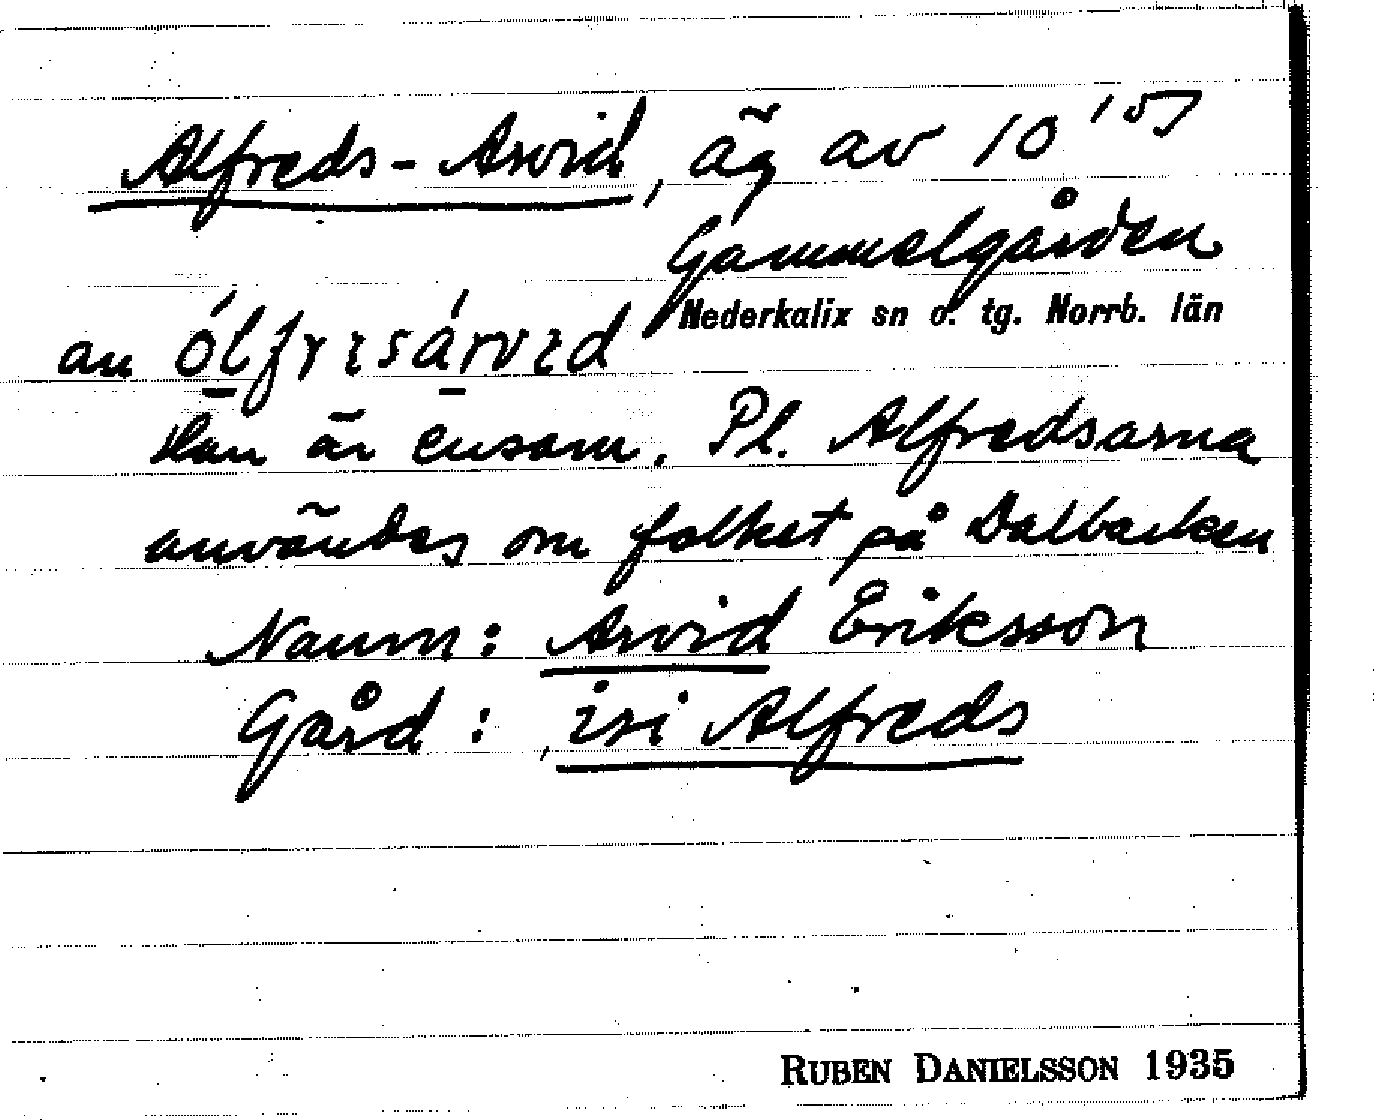 Alfreds-Arvid, äg av 10¹⁵⁷
Gammelgården
Nederkalix sn o. tg. Norrb. län
an ólfrɪsárvɪd
Han är ensam. Pl. Alfredsarna
användes om folket på Dalbacken
Namn: Arvid Eriksson
Gård: isi Alfreds
RUBEN DANIELSSON 1935